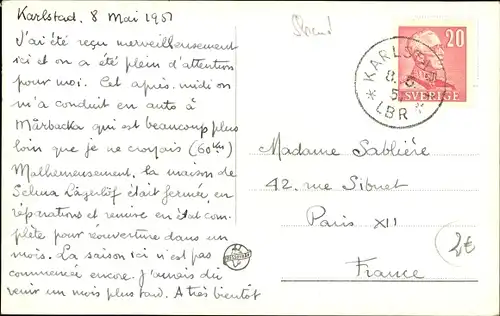 Karlstad, 8 Mai 1951
J'ai été reçu merveilleusement
ici et on a été plein d'attention
pour moi. Cet après-midi on
m'a conduit en auto à
Mårbacka qui est beaucoup plus
loin que je ne croyais (60 km)
Malheureusement, la maison de
Selma Lägerlöf était fermée, en
réparations et remise en état com-
plète pour réouverture dans un
mois. La saison ici n'est pas
commencée encore. J'aurais dû
venir un mois plus tard. A très bientôt
20
SVERIGE
KARLSTAD
8. 5.
5
LBR
Madame Sablière
42. rue Sibuet
Paris XII
France
2€